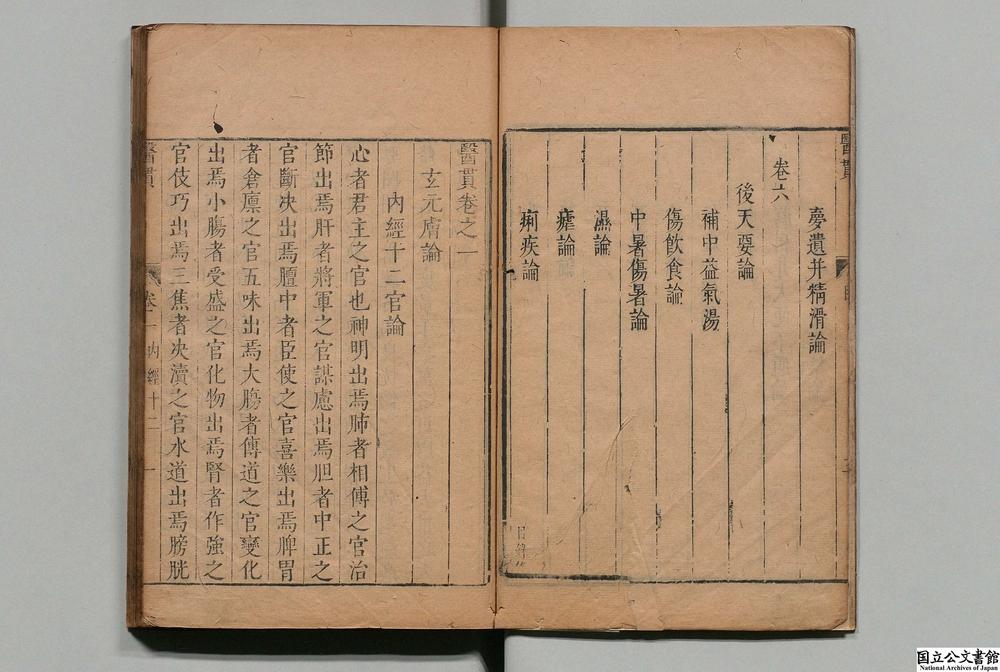 醫貫
夢遺并精滑論
卷六
後天要論
補中益氣湯
傷飲食論
中暑傷暑論
濕論
瘧論
痢疾論
目錄終
醫貫卷之一
玄元膚論
內經十二官論
心者君主之官也神明出焉肺者相傅之官治
節出焉肝者將軍之官謀慮出焉胆者中正之
官斷决出焉膻中者臣使之官喜樂出焉脾胃
者倉廪之官五味出焉大膓者傳道之官變化
出焉小膓者受盛之官化物出焉腎者作強之
官伎巧出焉三焦者决瀆之官水道出焉膀胱
醫貫
卷一
內經十二
一
国立公文書館
National Archives of Japan